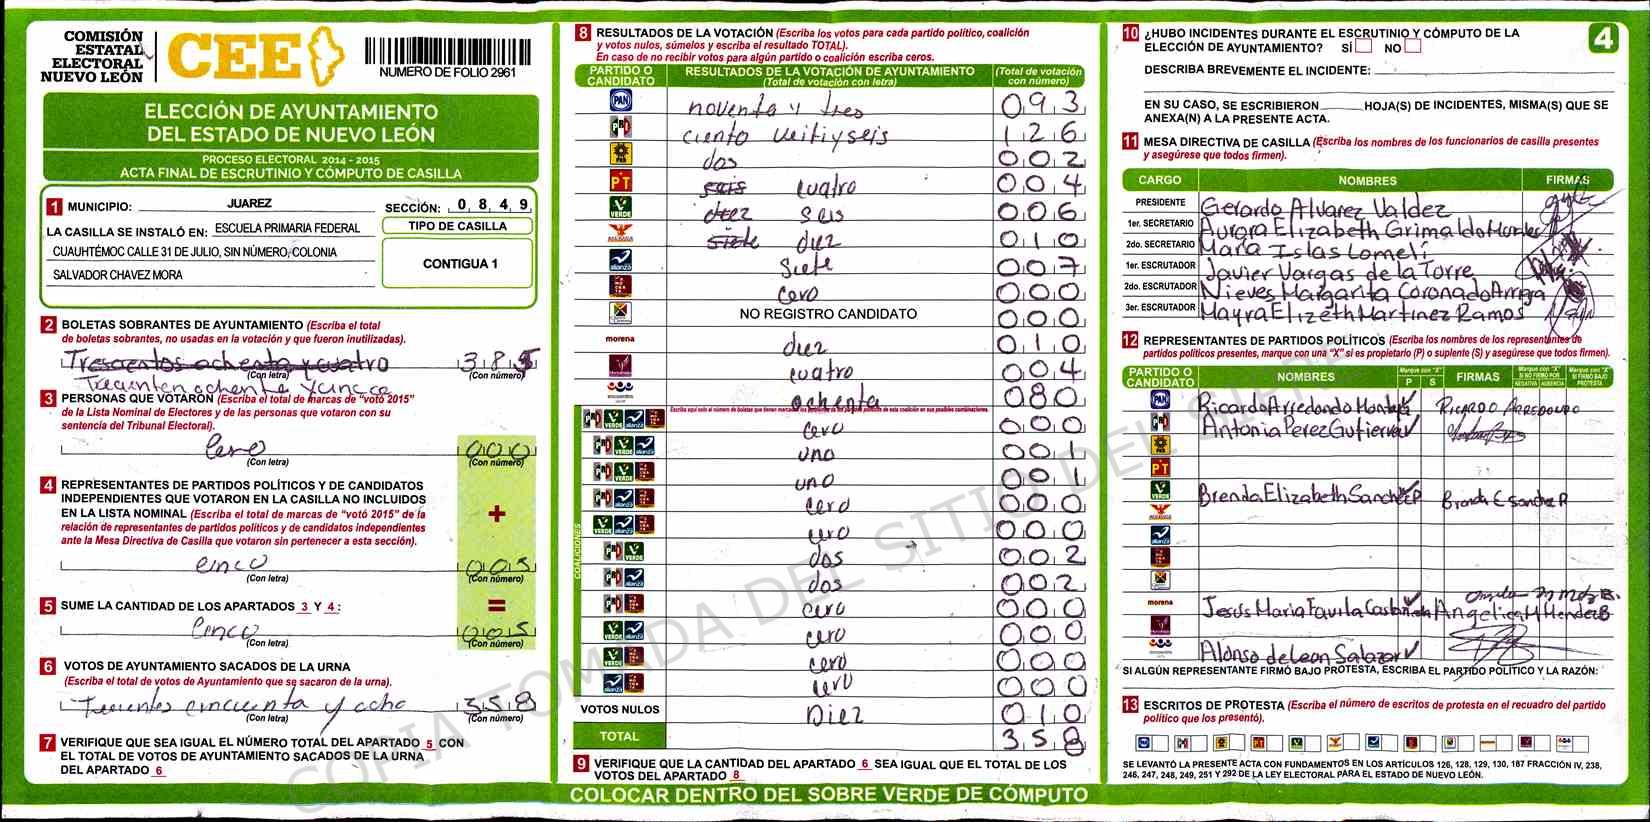 COMISIÓN
ESTATAL
ELECTORAL
NUEVO LEÓN
CEE
NUMERO DE FOLIO 2961
ELECCIÓN DE AYUNTAMIENTO
DEL ESTADO DE NUEVO LEÓN
PROCESO ELECTORAL 2014 - 2015
ACTA FINAL DE ESCRUTINIO Y CÓMPUTO DE CASILLA
1 MUNICIPIO: JUAREZ SECCIÓN: 0849
LA CASILLA SE INSTALÓ EN: ESCUELA PRIMARIA FEDERAL
CUAUHTÉMOC CALLE 31 DE JULIO, SIN NÚMERO, COLONIA
SALVADOR CHAVEZ MORA
TIPO DE CASILLA
CONTIGUA 1
2 BOLETAS SOBRANTES DE AYUNTAMIENTO (Escriba el total
de boletas sobrantes, no usadas en la votación y que fueron inutilizadas).
Trescientos ochenta y cuatro 385
(Con letra) (Con número)
3 PERSONAS QUE VOTARON (Escriba el total de marcas de “votó 2015”
de la Lista Nominal de Electores y de las personas que votaron con su
sentencia del Tribunal Electoral).
Cero 000
(Con letra) (Con número)
4 REPRESENTANTES DE PARTIDOS POLÍTICOS Y DE CANDIDATOS
INDEPENDIENTES QUE VOTARON EN LA CASILLA NO INCLUIDOS
EN LA LISTA NOMINAL (Escriba el total de marcas de “votó 2015” de la
relación de representantes de partidos políticos y de candidatos independientes
ante la Mesa Directiva de Casilla que votaron sin pertenecer a esta sección).
+
cinco 005
(Con letra) (Con número)
5 SUME LA CANTIDAD DE LOS APARTADOS 3 Y 4:
=
Cinco 005
(Con letra) (Con número)
6 VOTOS DE AYUNTAMIENTO SACADOS DE LA URNA
(Escriba el total de votos de Ayuntamiento que se sacaron de la urna).
cincuenta y ocho 358
(Con letra) (Con número)
7 VERIFIQUE QUE SEA IGUAL EL NÚMERO TOTAL DEL APARTADO 5 CON
EL TOTAL DE VOTOS DE AYUNTAMIENTO SACADOS DE LA URNA
DEL APARTADO 6
8 RESULTADOS DE LA VOTACIÓN (Escriba los votos para cada partido político, coalición
y votos nulos, súmelos y escriba el resultado TOTAL).
En caso de no recibir votos para algún partido o coalición escriba ceros.
PARTIDO O CANDIDATO
RESULTADOS DE LA VOTACIÓN DE AYUNTAMIENTO
(Total de votación con letra)
(Total de votación con número)
PAN noventa y tres 093
PRI ciento veitiyseis 126
PRD dos 002
PT seis cuatro 004
VERDE diez seis 006
siete diez 010
alianza siete 007
cero 000
NO REGISTRO CANDIDATO 000
morena diez 010
cuatro 004
encuentro ochenta 080
COALICIONES
cero 000
uno 001
uno 001
cero 000
cero 000
dos 002
dos 002
cero 000
cero 000
cero 000
cero 000
VOTOS NULOS Diez 010
TOTAL 358
9 VERIFIQUE QUE LA CANTIDAD DEL APARTADO 6 SEA IGUAL QUE EL TOTAL DE LOS
VOTOS DEL APARTADO 8
COLOCAR DENTRO DEL SOBRE VERDE DE CÓMPUTO
4
10 ¿HUBO INCIDENTES DURANTE EL ESCRUTINIO Y CÓMPUTO DE LA
ELECCIÓN DE AYUNTAMIENTO? SÍ NO
DESCRIBA BREVEMENTE EL INCIDENTE:
EN SU CASO, SE ESCRIBIERON HOJA(S) DE INCIDENTES, MISMA(S) QUE SE
ANEXA(N) A LA PRESENTE ACTA.
11 MESA DIRECTIVA DE CASILLA (Escriba los nombres de los funcionarios de casilla presentes
y asegúrese que todos firmen).
CARGO NOMBRES FIRMAS
PRESIDENTE Gerardo Alvarez Valdez
1er. SECRETARIO Aurora Elizabeth Grimaldo Morales
2do. SECRETARIO María Islas Lomelí
1er. ESCRUTADOR Javier Vargas de la Torre
2do. ESCRUTADOR Nieves Margarita Coronado Arriaga
3er. ESCRUTADOR Mayra Elizeth Martinez Ramos
12 REPRESENTANTES DE PARTIDOS POLÍTICOS (Escriba los nombres de los representantes de
partidos políticos presentes, marque con una “X” si es propietario (P) o suplente (S) y asegúrese que todos firmen).
PARTIDO O CANDIDATO NOMBRES Marque con “X” P S FIRMAS Marque con “X” SI NO FIRMÓ POR NEGATIVA AUSENCIA Marque con “X” SI FIRMÓ BAJO PROTESTA
PAN Ricardo Arredondo RICARDO ARREDONDO
PRI Antonia Perez Gutierrez
PRD
PT
VERDE Brenda Elizabeth Sanchez P Brenda E Sanchez P
alianza
morena Jesús Maria Favila Castañeda Angelica M Mendez B
encuentro Alonso de Leon Salazar
SI ALGÚN REPRESENTANTE FIRMÓ BAJO PROTESTA, ESCRIBA EL PARTIDO POLÍTICO Y LA RAZÓN:
13 ESCRITOS DE PROTESTA (Escriba el número de escritos de protesta en el recuadro del partido
político que los presentó).
SE LEVANTÓ LA PRESENTE ACTA CON FUNDAMENTOS EN LOS ARTÍCULOS 126, 128, 129, 130, 187 FRACCIÓN IV, 238,
246, 247, 248, 249, 251 Y 292 DE LA LEY ELECTORAL PARA EL ESTADO DE NUEVO LEÓN.
COPIA TOMADA DEL SITIO DEL SIPRE